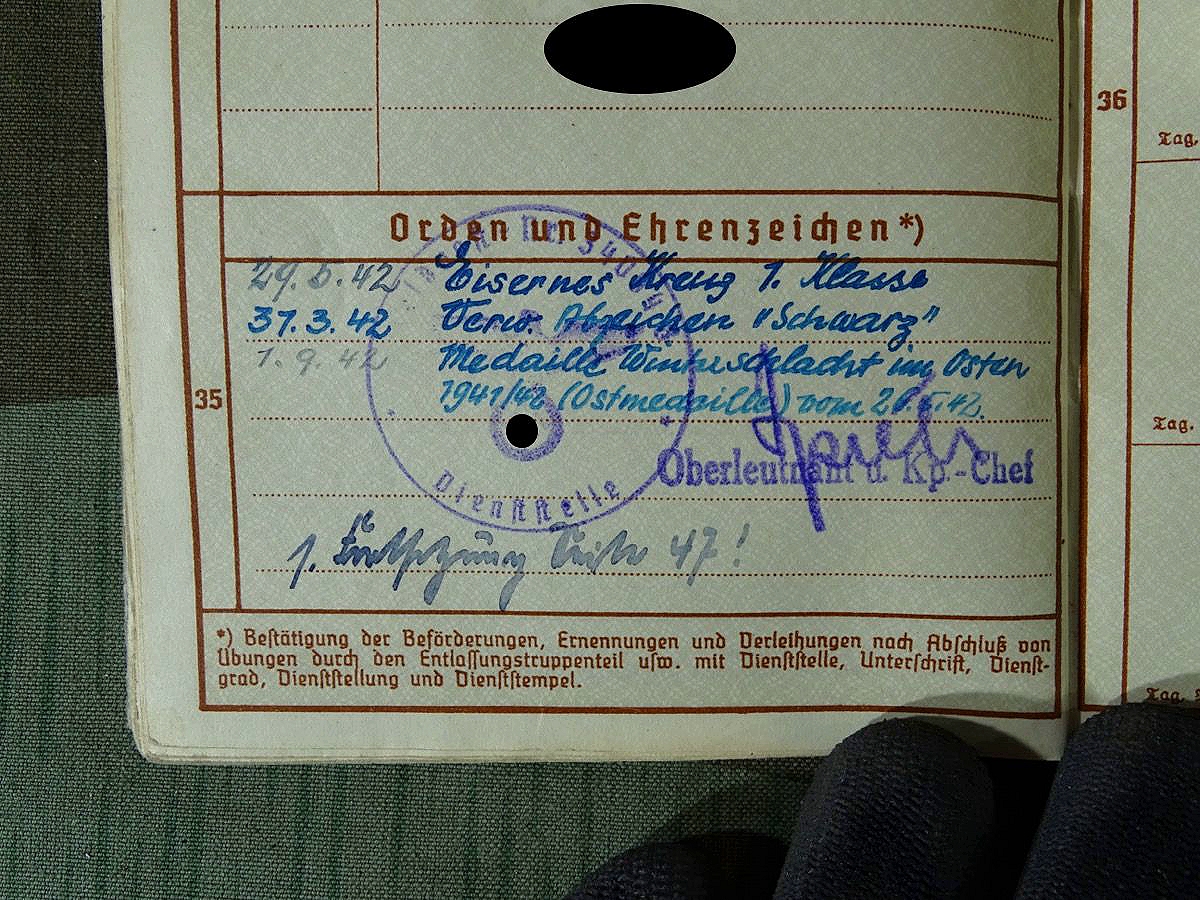 36
Tag,
Orden und Ehrenzeichen*)
29.5.42 Eisernes Kreuz 1. Klasse
31.3.42 Verw. Abzeichen "Schwarz"
Tag.
1.9.42 Medaille Winterschlacht im Osten
35
1941/42 (Ostmedaille) vom
Oberleutnant u. Kp.-Chef
Dienststelle
1. Fortsetzung Seite 47!
*) Bestätigung der Beförderungen, Ernennungen und Verleihungen nach Abschluß von
Übungen durch den Entlassungstruppenteil usw. mit Dienststelle, Unterschrift, Dienst-
grad, Dienststellung und Dienststempel.
Tag,